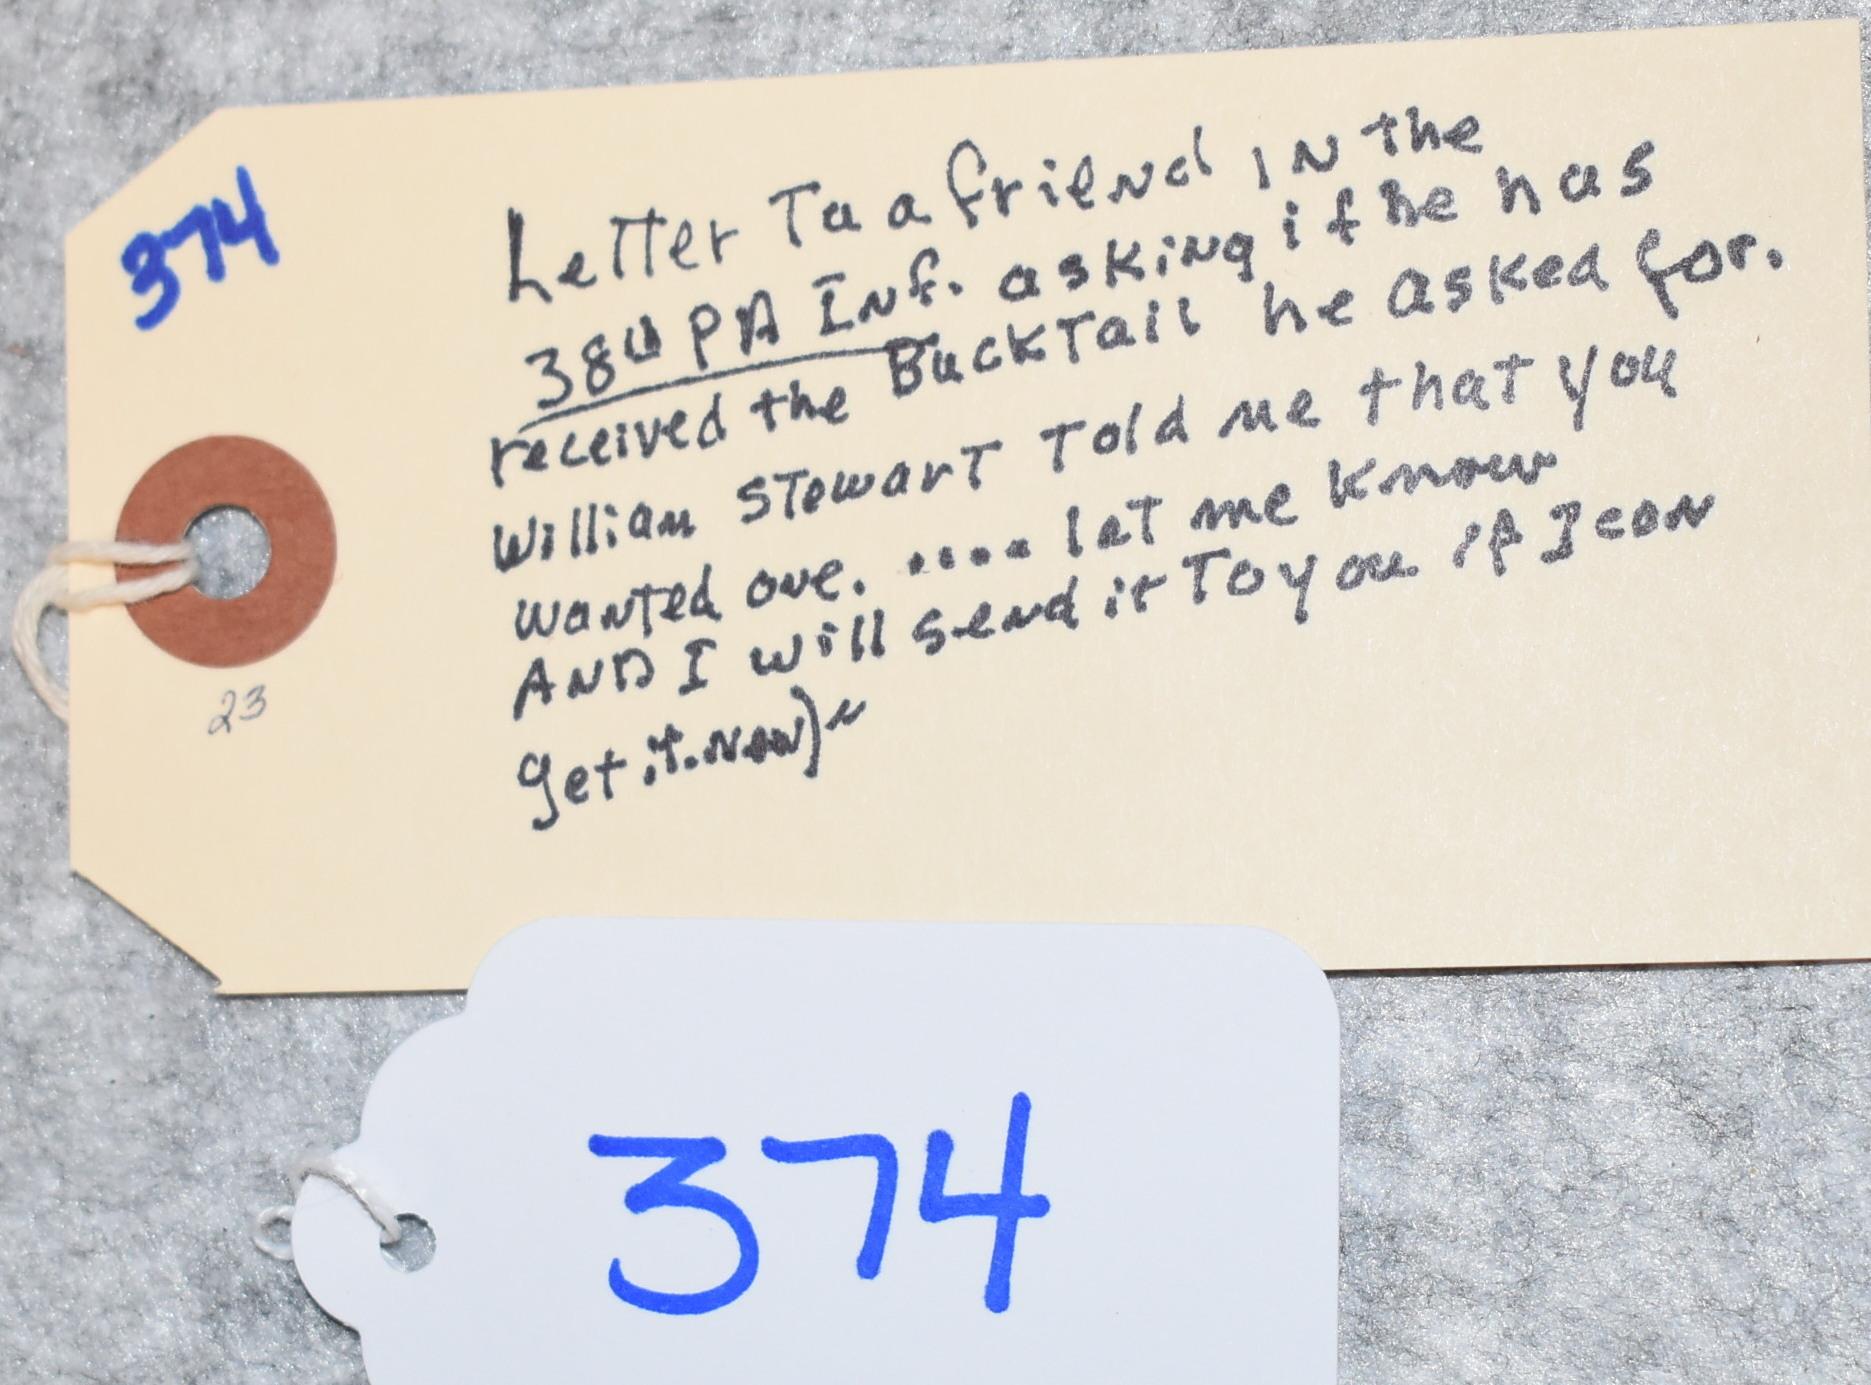 374
Letter To a friend in the
38th PA Inf. asking if he has
received the BuckTail he asked for.
William Stewart Told me that you
wanted one. .... let me know
AND I will send it To you if I can
get it. now)"
23
374